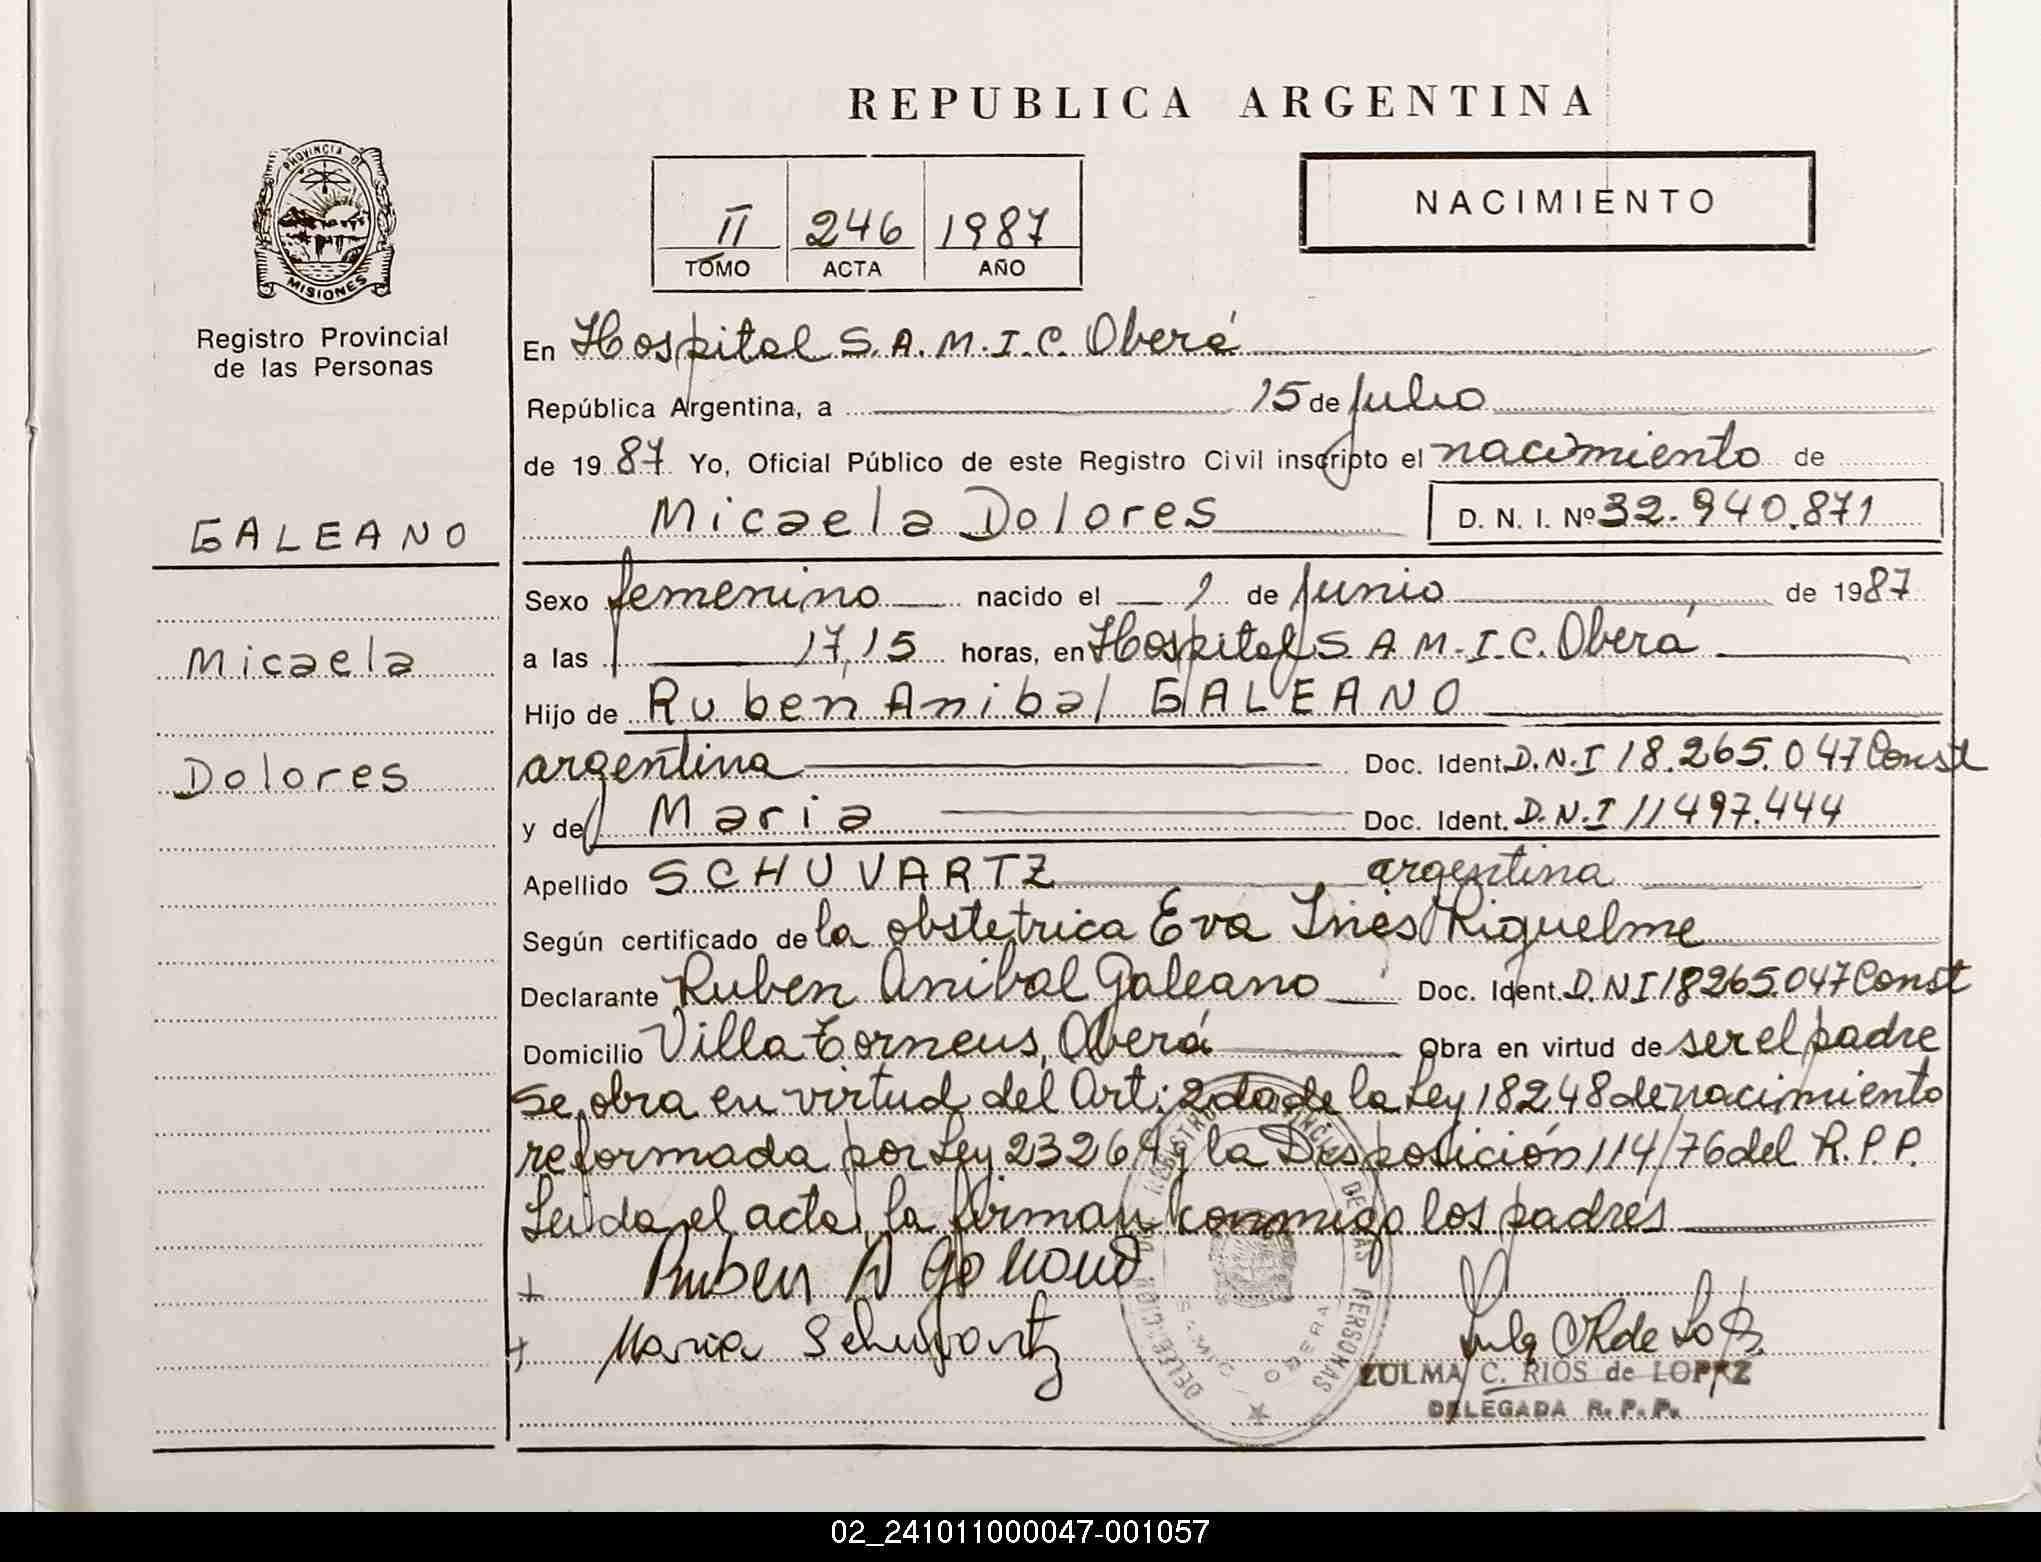 REPUBLICA ARGENTINA
PROVINCIA DE
MISIONES
Registro Provincial
de las Personas
II 246 1987
TOMO ACTA AÑO
NACIMIENTO
En Hospital S.A.M.I.C. Oberá
República Argentina, a 15 de Julio
de 1987 Yo, Oficial Público de este Registro Civil inscripto el nacimiento de
Micaela Dolores D. N. I. Nº 32.940.871
GALEANO
Micaela
Dolores
Sexo femenino nacido el 1 de Junio de 1987
a las 17,15 horas, en Hospital S A M.I.C. Oberá
Hijo de Ruben Anibal GALEANO
argentina Doc. Ident. D.N.I 18.265.047 Const
y de Maria Doc. Ident. D.N.I 11497.444
Apellido SCHUVARTZ argentina
Según certificado de la obstetrica Eva Inés Riquelme
Declarante Ruben Anibal Galeano Doc. Ident. D.N I 18265.047 Const
Domicilio Villa Torneus, Oberá Obra en virtud de ser el padre
se obra en virtud del Art: 2do de la Ley 18248 de nacimiento
reformada por Ley 23264 y la Disposición 114/76 del R.P.P.
Leida el acta, la firman conmigo los padres
Ruben A Galeano
Maria Schuvartz
ZULMA C. RIOS de LOPEZ
DELEGADA R. P. P.
02_241011000047-001057